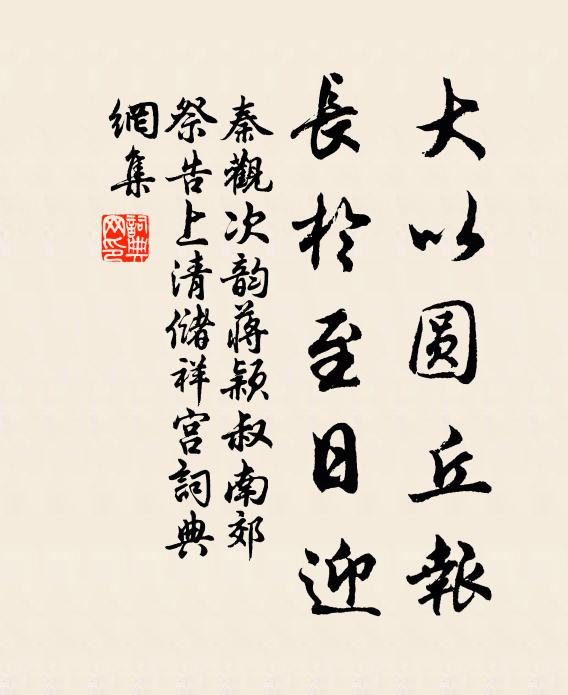 大以圓丘報
長於至日迎
秦觀次韵蔣穎叔南郊
祭告上清儲祥宮詞典
網集
詞典網印